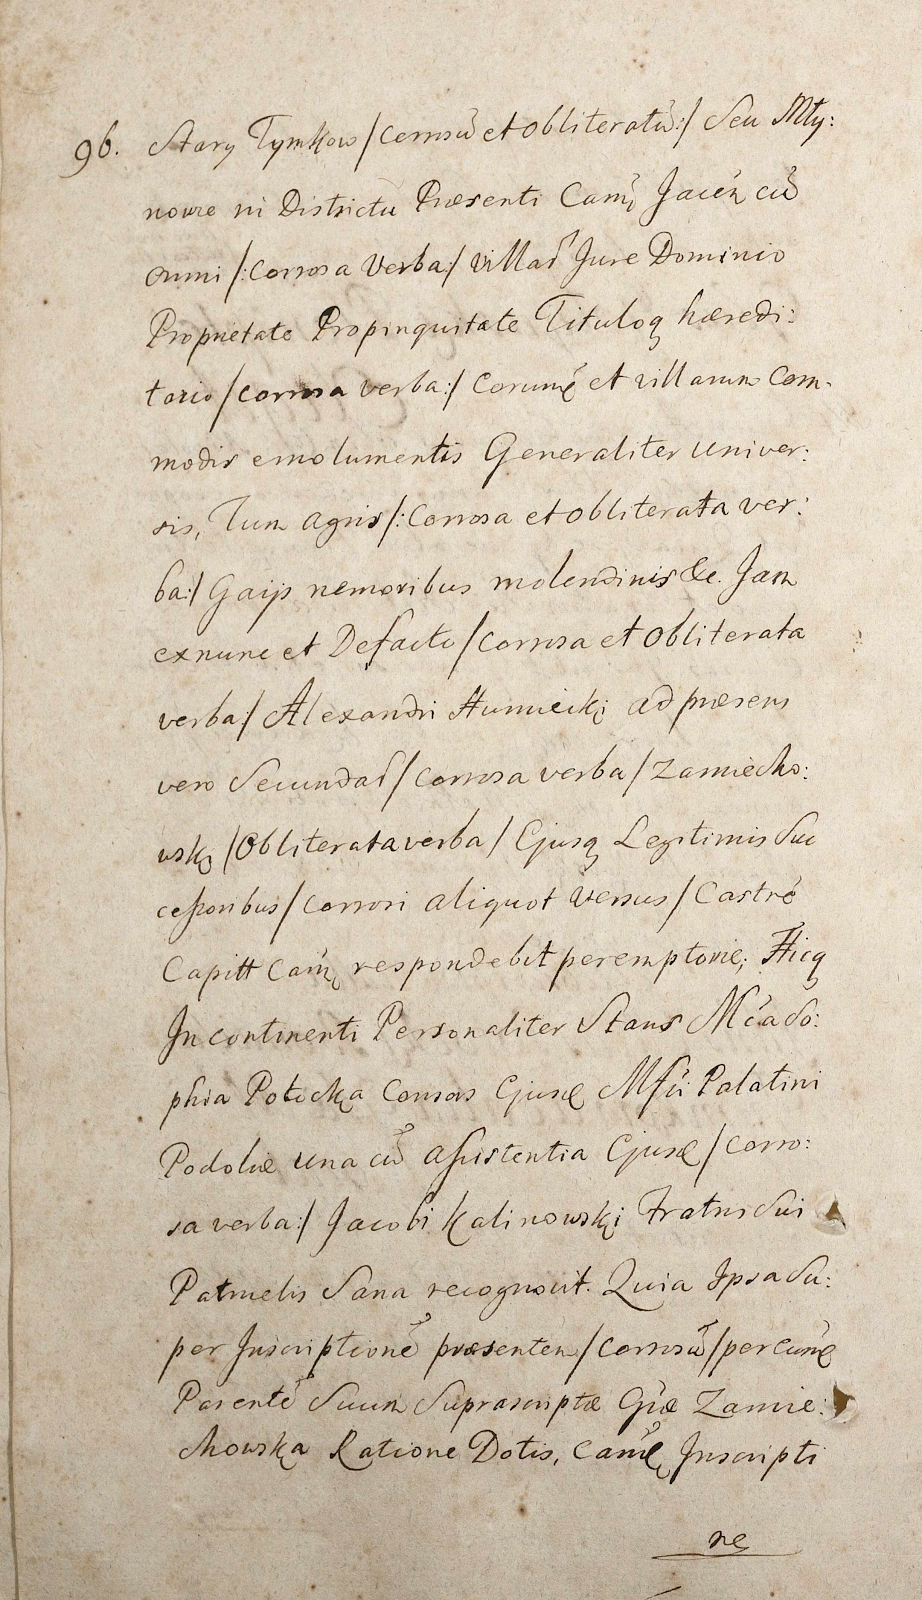 96. Stary Tymkow /Corrosū et obliteratū:/ Seu Mły:
nowce in Districtu Præsenti Cam̃ Jaceñ cū
omni /:Corrosa Verba:/ villar̃ Jure Dominio
Proprietate Propinquitate Tituloq hæredi:
tario /corrosa verba:/ Corumq̃ et villarum Com-
modis emolumentis Generaliter univer:
sis, Tum agris /:Corrosa et obliterata ver:
ba:/ Gaijs nemoribus molendinis &c. Jam
exnunc et Defacto /corrosa et obliterata
verba:/ Alexandri Humiecki ad præsens
vero Secundar̃ /corrosa verba/ Zamiecho:
wski /Obliterata verba/ Ejusq Legitimis Suc
cessoribus /corrosi aliquot Versus/ Castrẽ
Capitt Cam̃ respondebit peremptorie; Hicq
In continenti Personaliter Stans Mc̃a So:
phia Potocka Consors Ejusđ Mfc̃i Palatini
Podoliæ una cū assistentia Ejusđ /Corro:
sa verba:/ Jacobi Kalinowski Fratris Sui
Patruelis Sana recognovit. Quia Ipsa Su:
per Inscriptionẽ præsentem /corrosū/ per eunđ
Parentẽ Suum Suprascriptæ Gñæ Zamie:
chowska Ratione Dotis, Cam̃ Inscripti
ne